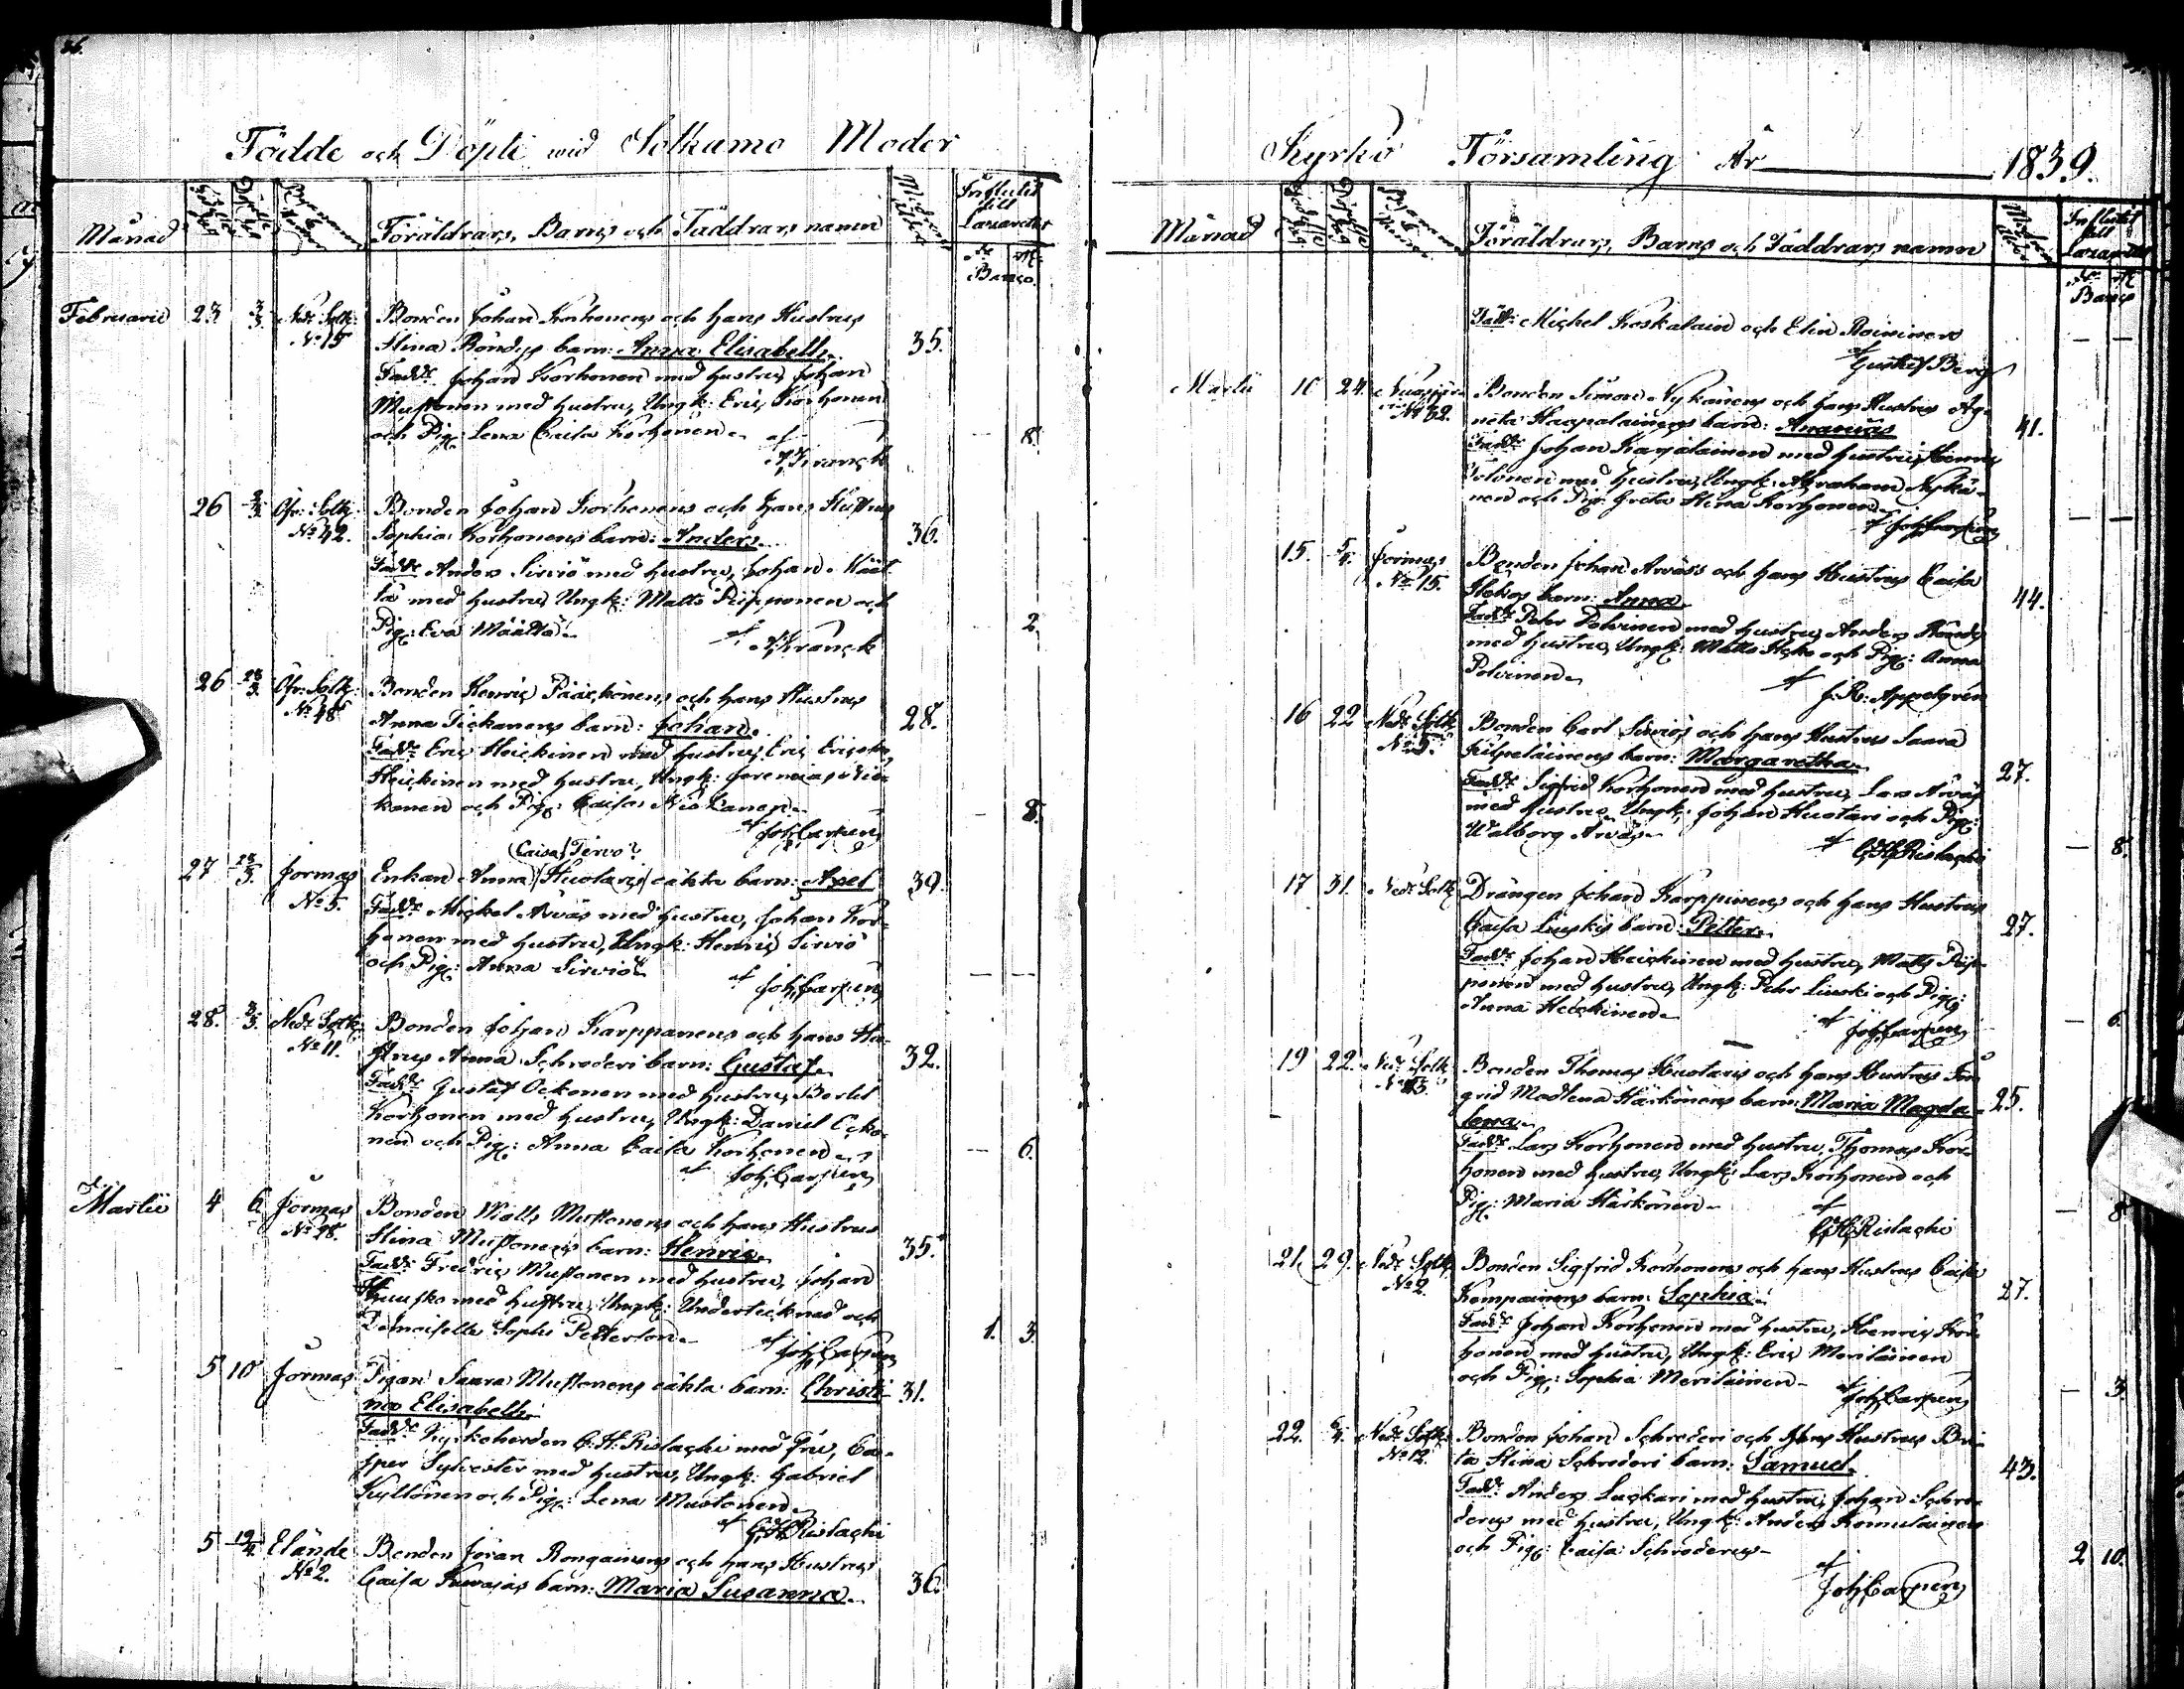 Födde och Döpte wid Sotkamo Moder
Månad
Födelse dag
Döpelse dag
Byanamn & Nummer
Föräldrars, Barns och Faddrars namn
Modrens ålder
Influtit till Lazarettet
Banco
Februarii 23 3/3 Nedr. Sotk: Bonden Johan Korhonens och hans Hustrus
No 15 Stina Röndys barn: Anna Elisabeth 35.
Fadd: Johan Korhonen med hustru, Johan
Mustonen med hustru, Ungk: Eric Korhonen
och Pig: Lena Caisa Korhonen. af 8.
Kranck
26 3/3 Öfr: Sotk: Bonden Johan Korhonens och hans Hustrus
No 42. Sophia Korhonens barn: Anders. 36.
Fadd: Anders Sirviö med hustru, Johan Määt
tä med hustru, Ungk: Matts Piipponen och
Pig: Eva Määttä. af 2.
Kranck
26 28/3 Öfr: Sotk: Bonden Henric Pääckönens och hans Hustrus
No 48 Anna Tickanens barn: Johan. 28.
Fadd: Eric Heickinen med hustru, Eric Ericsson
Heickinen med hustru, Ungk:
konen och Pig: Caisa Niskanen. 8.
af Joh Carpen
(Caisa) Tervo?
27 28/3 Jormas Enkan Anna Huotaris oäkta barn: Axel 39.
No 5. Fadd: Michel Arväs med hustru, Johan Kor-
honen med hustru, Ungk: Henric Sirviö
och Pig: Anna Sirviö.
af Joh Carpen
28. 3/3. Nedr Sotk: Bonden Johan Karppanens och hans Hu-
No 11. strus Anna Schroderi barn: Gustaf. 32.
Fadd: Gustaf Ockonen med hustru, Bertel
Korhonen med hustru, Ungk: Daniel Ocko-
nen och Pig: Anna Caisa Korhonen. 6.
af Joh Carpen
Martii 4 6 Jormas Bonden Matts Mustonens och hans Hustrus
No 28. Stina Mustonens barn: Henric. 35.
Fadd: Fredric Mustonen med hustru, Johan
Huusko med hustru, Ungk: Undertecknad och
Demoiselle Sophi Petterson. 1. 3.
af Joh Carpen
5 10 Jormas Pigan Saara Mustonens oäkta barn: Christi- 31.
na Elisabeth.
Fadd: Kyrkoherden C. H. Rislachi med Fru, Ca-
sper Sylvester med hustru, Ungk: Gabriel
Kyllönen och Pig: Lena Mustonen.
af C H Rislachi
5 12/4 Elände Bonden Jöran Rongainens och hans Hustrus
No 2. Caisa Kuvajas barn: Maria Susanna. 36.
Kyrko Församling År 1839.
Månad
Födelse dag
Döpelse dag
Byanamn & Nummer
Föräldrars, Barns och Faddrars namn
Modrens ålder
Influtit till Lazarettet
Banco
Fadd: Michel Koskalain och Elin Roininen
af Gustaf Berg
Martii 10 24. Bonden Simon Nykänens och hans Hustrus Ag-
No 32. neta Haapalainens barn: Ananias 41.
Fadd: Johan Karjalainen med hustru, Henric
Tolonen med hustru, Ungk: Abraham Nykä-
nen och Pig: Greta Stina Korhonen.
af Joh Carpen
15. 5/4. Jormas Bonden Johan Arväs's och hans Hustrus Caisa
No 15. barn: Anna. 44.
Fadd: Pehr Polvinen med hustru, Anders Röndy
med hustru, Ungk: Matts och Pig: Anna
Polvinen.
af J. R. Appelgrén
16 22 Nedr Sotk: Bonden Carl Sirviös och hans Hustrus Saara
No 9. Kilpeläinens barn: Margaretha. 27.
Fadd: Sigfrid Korhonen med hustru, Lars Arväs
med hustru, Ungk: Johan Huotari och Pig:
Walborg Arväs. 8.
af C H Rislachi
17 31. Nedr Sotk: Drängen Johan Karppinens och hans Hustrus
Caisa Liuskis barn: Petter. 27.
Fadd: Johan Heickinen med hustru, Matts Piip-
ponen med hustru, Ungk: Pehr Liuski och Pig:
Anna Heickinen. 6.
af Joh Carpen
19 22. Nedr Sotk: Bonden Thomas Huotaris och hans Hustrus In-
grid Madlena Härkönens barn: Maria Magda- 25.
lena.
Fadd: Lars Korhonen med hustru, Thomas Kor-
honen med hustru, Ungk: Lars Korhonen och
Pig: Maria Härkönen. 8
af C H Rislachi
21. 29. Nedr Sotk: Bonden Sigfrid Korhonens och hans Hustrus Caisa
No 2. Kempainens barn: Sophia. 27.
Fadd: Johan Korhonen med hustru, Henric Kor-
honen med hustru, Ungk: Eric Meriläinen
och Pig: Sophia Meriläinen. 3
af Joh Carpen
22. 5/4. Nedr Sotk: Bonden Johan Schroderi och hans Hustrus Bri-
No 12. ta Stina Schroderi barn: Samuel. 43.
Fadd: Anders Luckari med hustru, Johan Schro-
derus med hustru, Ungk: Anders Komulainen
och Pig: Caisa Schroderus. 2 10.
af
Joh Carpen